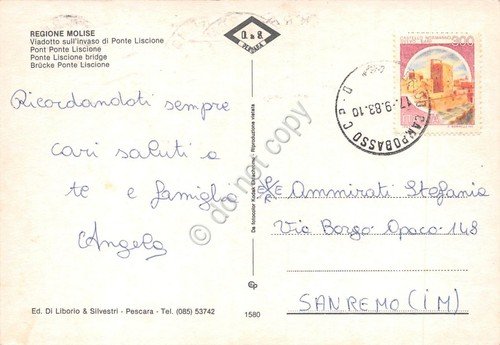 REGIONE MOLISE
Viadotto sull'invaso di Ponte Liscione
Pont Ponte Liscione
Ponte Liscione bridge
Brücke Ponte Liscione
D. & S.
PESCARA
300
CAMPOBASSO C.P.
17.9.83.10
Ricordandoti sempre
cari saluti a
te e famiglia
Angela
Da fotocolor Kodak Ektachrome - Riproduzione vietata
do not copy
Ammirati Stefania
Via Borgo Opaco 148
SANREMO (IM)
Ed. Di Liborio & Silvestri - Pescara - Tel. (085) 53742
1580